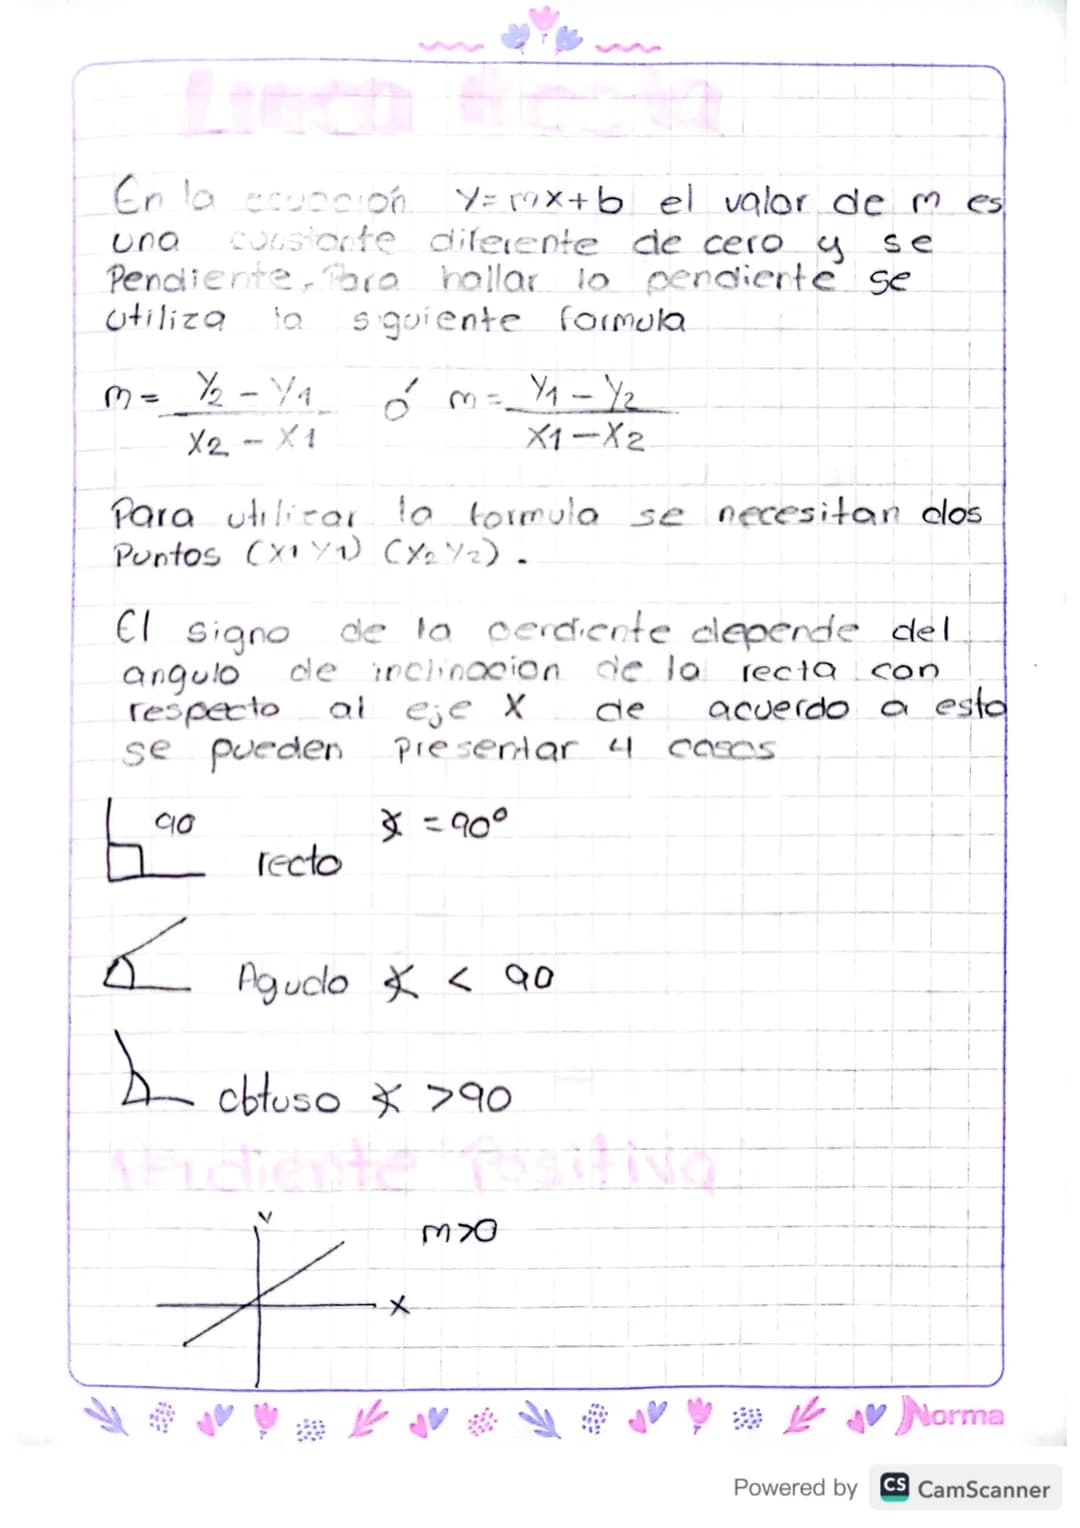 Linea Recta
En la ecuación y=mx+b el valor de m es
una constante diferente de cero y se
Pendiente, Para hallar la pendiente se
utiliza la siguiente formula
m = Y2 - Y1 / X2 - X1 ó m = Y1 - Y2 / X1 - X2
Para utilizar la formula se necesitan dos
Puntos (X1 Y1) (X2 Y2).
El signo de la pendiente depende del
angulo de inclinacion de la recta con
respecto al eje X de acuerdo a esto
se pueden Presentar 4 casos
90 recto ∡ = 90°
Agudo ∡ < 90
obtuso ∡ > 90
Pendiente Positiva
Y
m>0
X
Norma
Powered by CS CamScanner